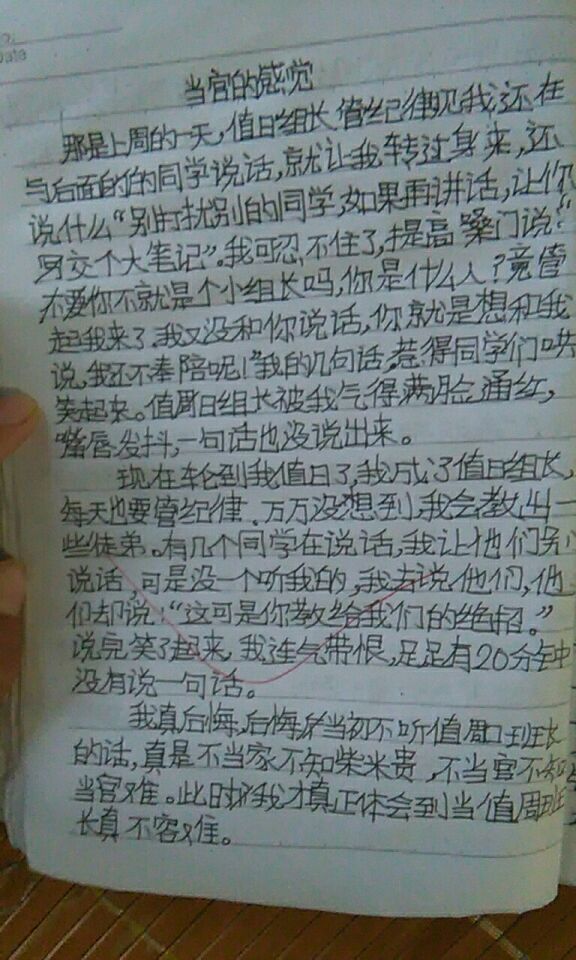 No:
Date
当官的感觉
那是上周的一天,值日组长管纪律见我还在
与后面的的同学说话,就让我转过身来,还
说什么“别打扰别的同学,如果再讲话,让你
另交个大笔记”。我可忍不住了,提高嗓门说:“
不要你不就是个小组长吗,你是什么人?竟管
起我来了,我又没和你说话,你就是想和我
说,我还不奉陪呢!”我的几句话,惹得同学们哄
笑起来。值周日组长被我气得满脸通红,
嘴唇发抖,一句话也没说出来。
现在轮到我值日了,我成了值日组长,
每天也要管纪律。万万没想到,我会教出一
些徒弟。有几个同学在说话,我让他们别
说话,可是没一个听我的,我去说他们,他
们却说:“这可是你教给我们的绝招。”
说完笑了起来,我连气带恨,足足有20分钟
没有说一句话。
我真后悔,后悔当初不听值周班长
的话,真是不当家不知柴米贵,不当官不知
当官难。此时我才真正体会到当值周班
长真不容难。